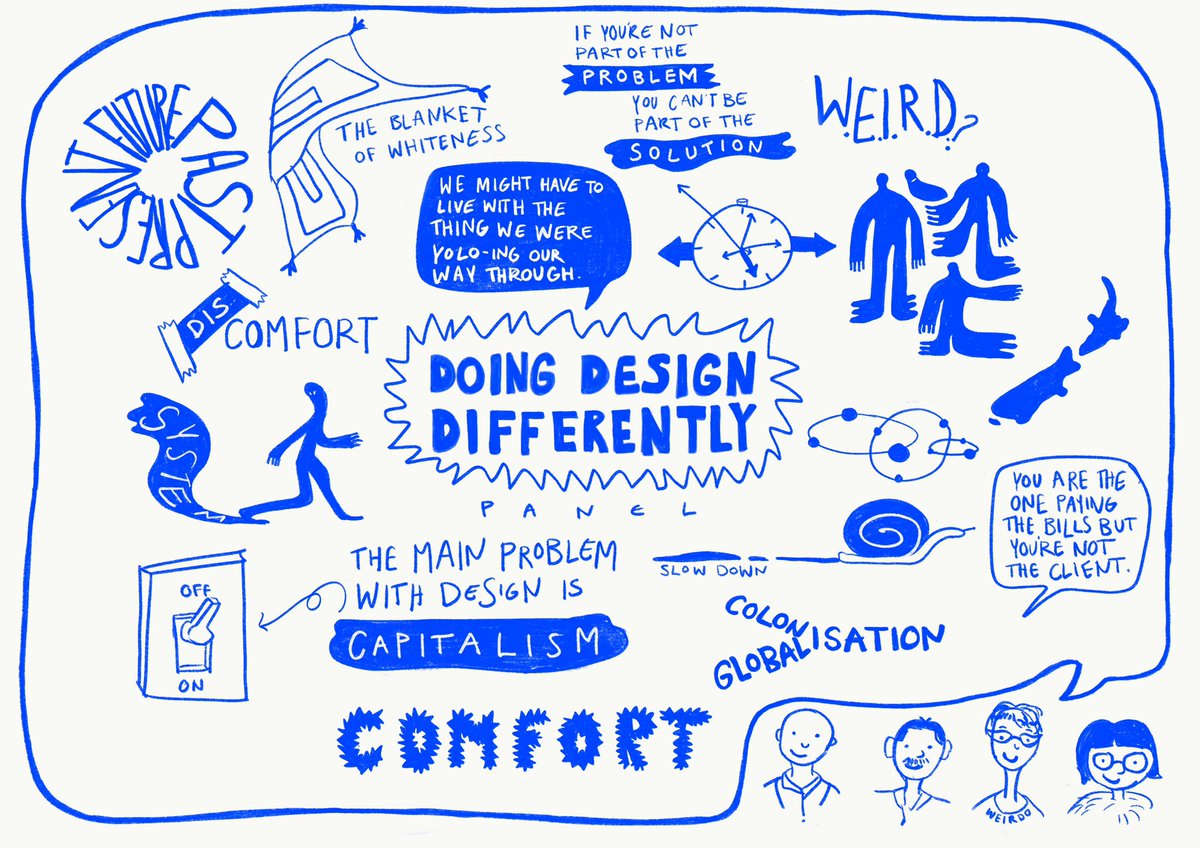 FUTURE
PAST
PRESENT
THE BLANKET
OF WHITENESS
IF YOU'RE NOT
PART OF THE
PROBLEM
YOU CAN'T BE
PART OF THE
SOLUTION
W.E.I.R.D.?
WE MIGHT HAVE TO
LIVE WITH THE
THING WE WERE
YOLO-ING OUR
WAY THROUGH.
DIS
COMFORT
DOING DESIGN
DIFFERENTLY
PANEL
SYSTEM
YOU ARE THE
ONE PAYING
THE BILLS BUT
YOU'RE NOT
THE CLIENT.
OFF
ON
THE MAIN PROBLEM
WITH DESIGN IS
CAPITALISM
SLOW DOWN
COLON
GLOBALISATION
COMFORT
WEIRDO